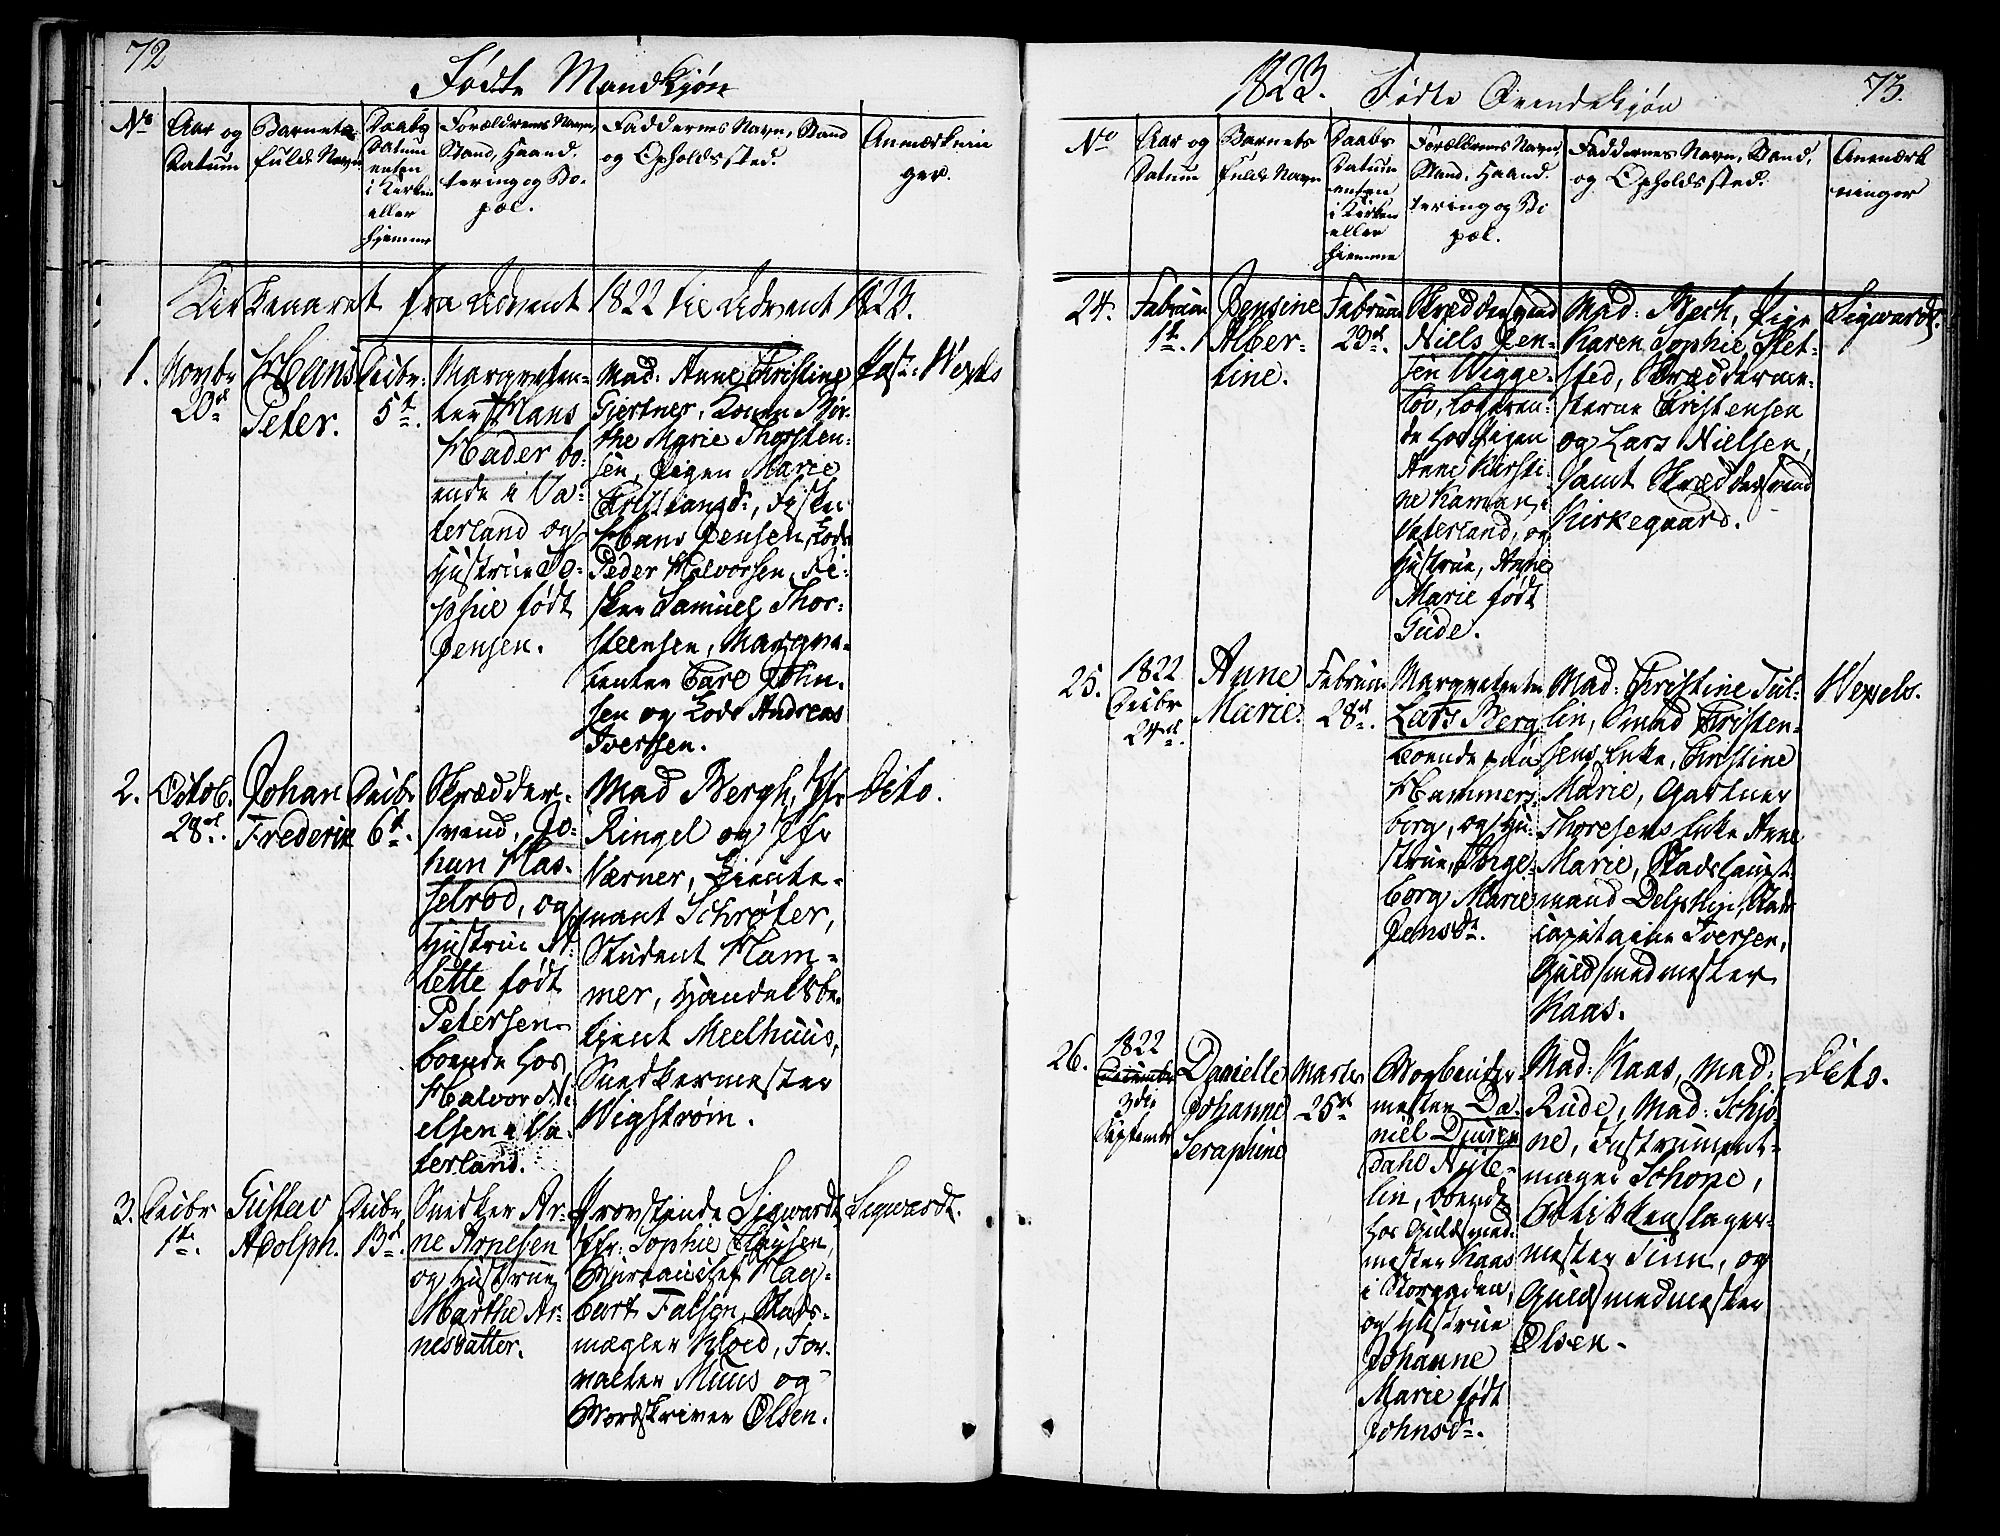 72
Fødte Mandkjøn
No
Aar og
Datum
Barnets
fulde Navn
Daabs
Datum
enten
i Kirken
eller
hjemme
Forældrenes Navn,
Stand, Haand-
tering og Bo-
pæl.
Faddernes Navn, Stand
og Opholdssted.
Anmærknin
ger.
Kirkeaaret fra Advent 1822 til Advent 1823.
1.
Novbr
20d
Hans
Peter.
Decbr:
5t
Margreten-
ter Hans
Hader bo-
ende i Va-
terland og
Hustrue So-
phie født
Jensen.
Mad: Anne Christine
Giertner, Konen Bir-
the Marie Thorsten-
sen, Pigen Marie
Christiansd:, Fisker
Hans Jensen, Lods
Peder Halvorsen, Fi-
sker Samuel Thor-
steensen, Margre-
tenter Carl John-
sen og Lods Andreas
Iversen.
Past: Wexels
2.
Octob.
28d.
Johan
Frederik
Decbr
6t.
Skrædder-
svend, Jo-
han Has-
selrod, og
Hustrue
lette født
Petersen
boende hos
Halvor Ni-
elsen i Va-
terland.
Mad Bergh, Jfr
Ringel og Jfr
Værner, Lieute-
nant Schrøter,
Student Ham-
mer, Handelsbe-
tjent Meelhuus,
Snedkermester
Wigstrøm.
Dito.
3.
Decbr
1te.
Gustav
Adolph.
Decbr
13d.
Snedker Ar-
ne Arnesen
og Hustrue
Marthe Ar-
nesdatter.
Provstinde Sigwardt
Jfr: Sophie Clausen,
Bureauchef Hag-
bart Falsen, Stads-
mægler Kloed, For-
valter Muus og
Bordskriver Olsen.
Sigwardt.
1823.
Fødte Qvindekjøn
73.
No
Aar og
Datum
Barnets
fulde Navn
Daabs
Datum
enten
i Kirken
eller
hjemme
Forældrenes Navn,
Stand, Haand-
tering og Bo
pæl.
Faddernes Navn, Stand,
og Opholdssted.
Anmærk
ninger
24.
Februar
1t.
Jensine
Alber-
tine.
Februar
23d.
Skræddersvend
Niels Jen-
sen Wigge-
lov, logeren-
de hos Pigen
Anne Kirsti-
ne Kaman, i
Vaterland, og
Hustrue, Anne
Marie født
Gude.
Mad: Bech, Pige
Karen Sophie Flet-
sted, Skrædderme-
sterne Christensen
og Lars Nielsen,
samt Skræddersvend
Kirkegaard.
Sigwardt.
25.
1822
Decbr
24d.
Anne
Marie.
Februar
28d.
Margretenter
Lars Berg
boende paa
Hammers-
borg, og Hu-
strue, Inge-
borg Marie
Jensd.
Mad: Christine Tul-
lin, Smed Christen-
sens Enke, Christine
Marie, Gartner
Thoresens Enke Anne
Marie, Stadshaupt-
mand Delphin, Stads
capitaine Iversen,
Guldsmedmester
Kaas.
Wexels.
26.
1822
3die
September
Danielle
Johanne
Seraphine
Martes
25d
Bogbinder
mester Da-
niel Djuren-
dahl Nylle-
lin, boende
hos Guldsmed-
mester Kaas
i Storgaden,
og Hustrue
Johanne
Marie født
Johnsd.
Mad: Kaas, Mad:
Rude, Mad: Schjø-
ne, Instrument-
mager Schøne,
Blikkenslager-
mester Sinn, og
Guldsmedmester
Olsen.
Dito.